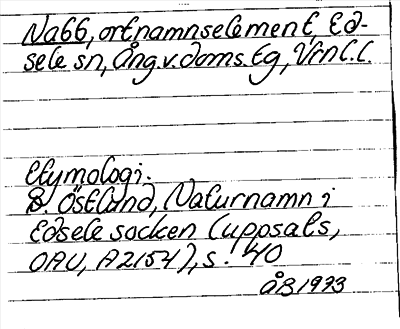 Nabb, ortnamnselement, Ed-
sele sn, Ång.v.doms.tg, Vrnl.l.
etymologi.
D. Östlund, Naturnamn i
Edsele socken (uppsats,
OAU, A2154), s. 40
ÅB 1973